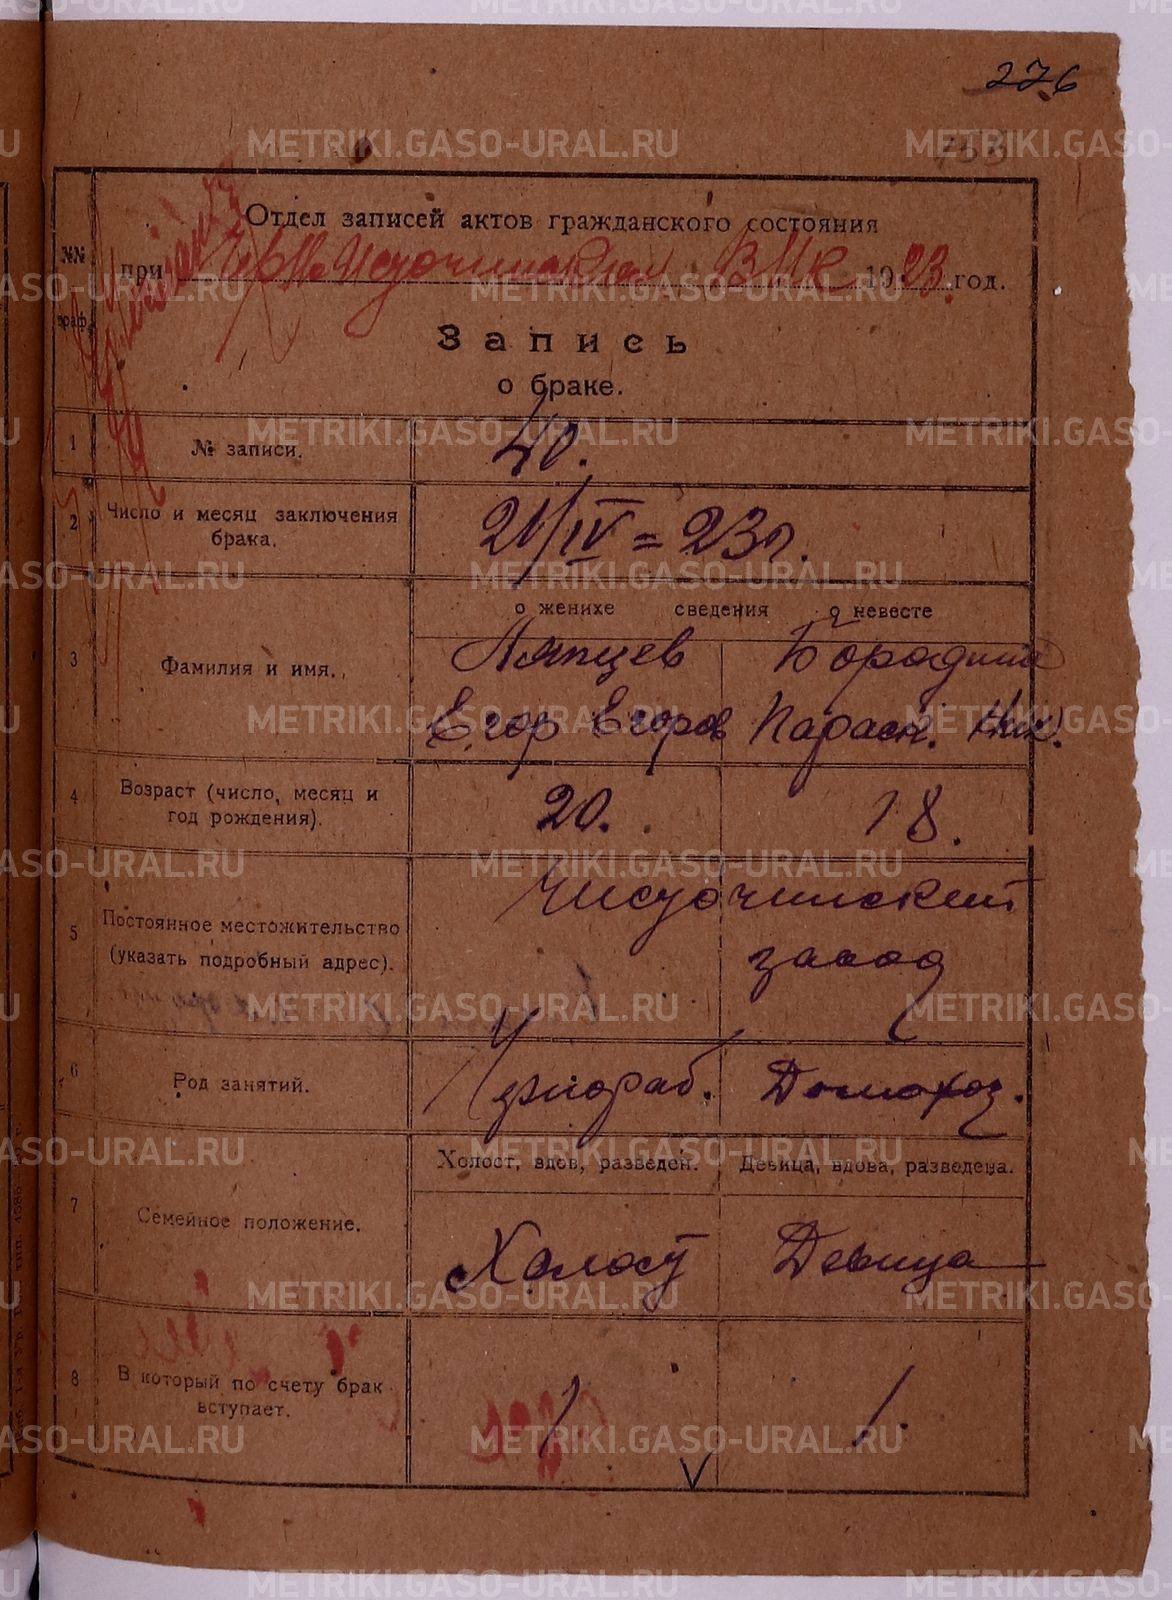 276
Отдел записей актов гражданского состояния
№№ граф.
при Н-Источинском ВИК 1923 год.
Запись
о браке.
1 № записи. 40.
2 Число и месяц заключения брака. 21/IV=23г.
о женихе сведения о невесте
3 Фамилия и имя. Ляпцев Бородина
Егор Егоров Параск. Ник.
4 Возраст (число, месяц и год рождения). 20. 18.
5 Постоянное местожительство (указать подробный адрес).
завод
6 Род занятий. Домохоз.
Холост, вдов, разведен. Девица, вдова, разведена.
7 Семейное положение. Холост Девица
8 В который по счету брак вступает. 1 1.
METRIKI.GASO-URAL.RU